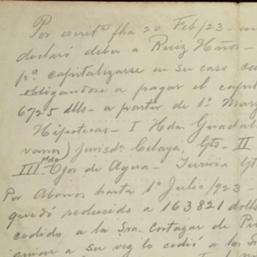 Por escrit. fha 20 Feb/23 -
declaró deber a Ruiz Hnos -
pª capitalizarse en su caso
obligandose a pagar el capit
6725 dlls - a partir de 1º Marz
Hipotecas - I Hda Guadal
) Jurisd. Celaya, Gto - II
III Ojos de Agua -
Por Abonos hasta 1º Julio/923 -
quedó reducido a 163821 dolls
cedido a la Sra. Cortazar de
a su vez lo cedió a los